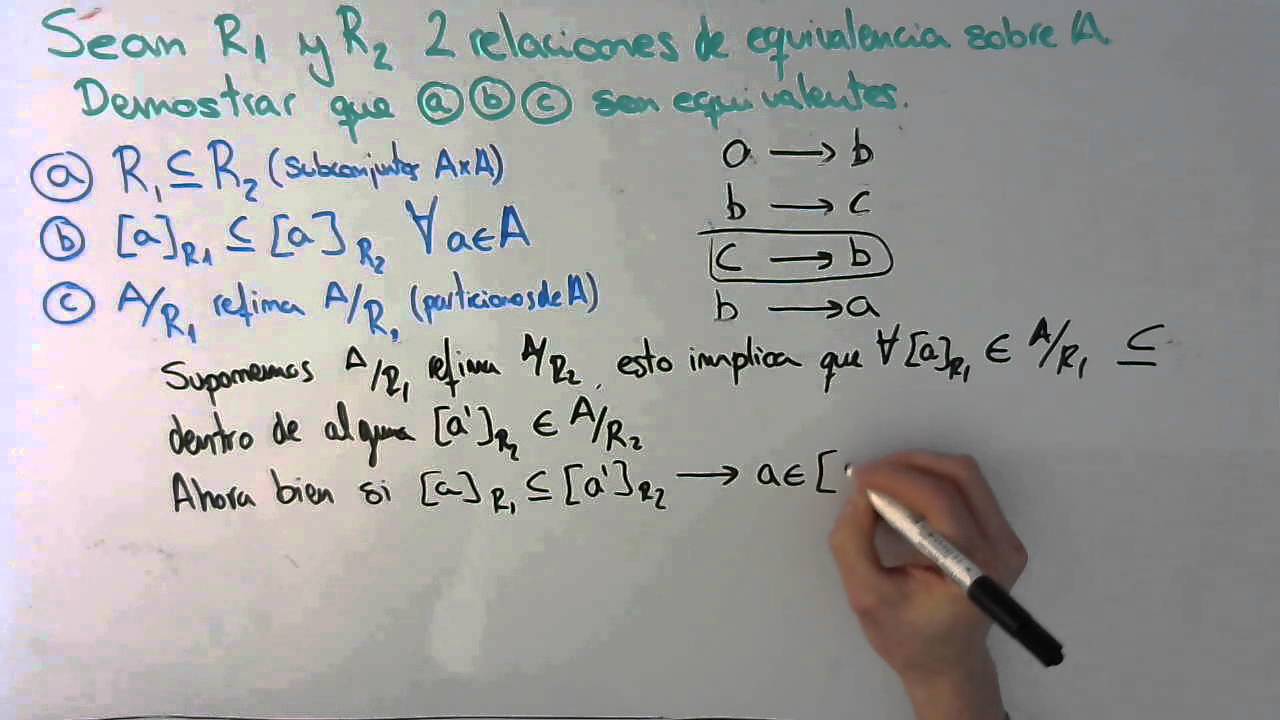 Sean R₁ y R₂ 2 relaciones de equivalencia sobre A.
Demostrar que ⓐ ⓑ ⓒ son equivalentes.
ⓐ R₁ ⊆ R₂ (subconjuntos A×A)
ⓑ [a]R₁ ⊆ [a]R₂ ∀a∈A
ⓒ A/R₁ refina A/R₂ (particiones de A)
a → b
b → c
c → b
b → a
Suponemos A/R₁ refina A/R₂, esto implica que ∀[a]R₁ ∈ A/R₁ ⊆
dentro de alguna [a']R₂ ∈ A/R₂
Ahora bien si [a]R₁ ⊆ [a']R₂ → a∈[